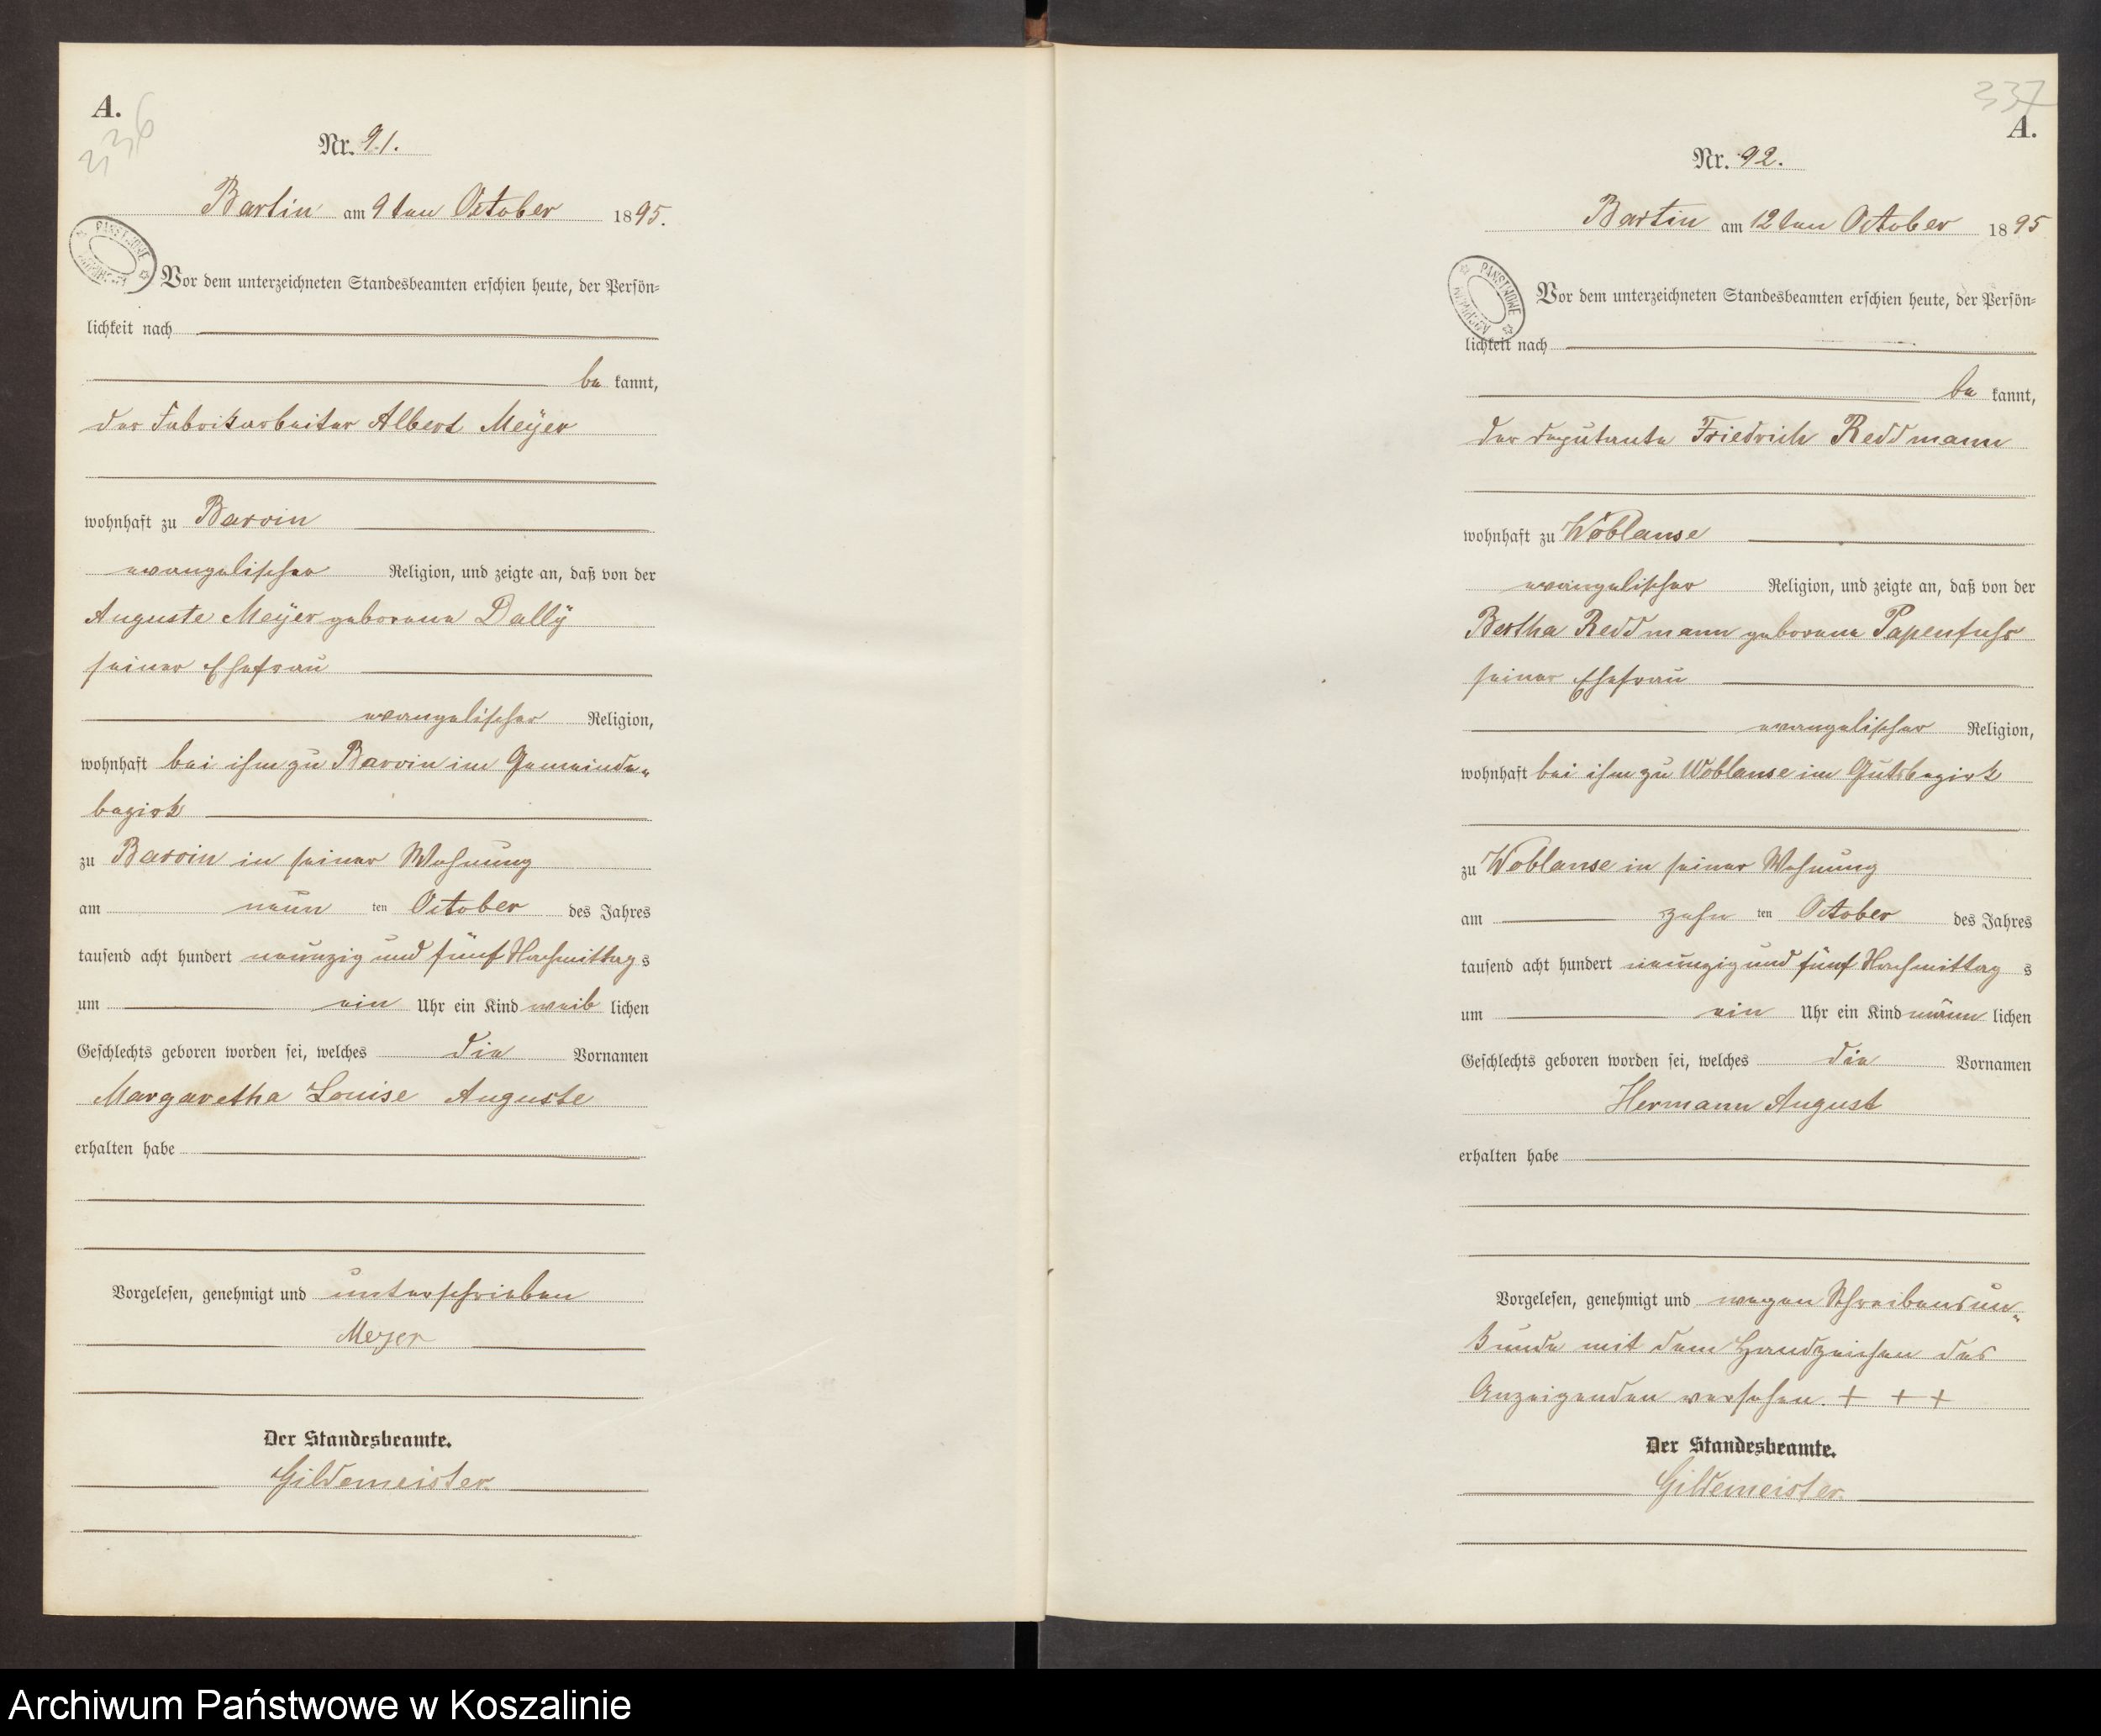 A.
336
Nr. 91.
Bartin am 9ten October 1895.
PAŃSTWOWE
Vor dem unterzeichneten Standesbeamten erschien heute, der Persön-
lichkeit nach
be kannt,
der Fabrikarbeiter Albert Meÿer
wohnhaft zu Barvin
evangelischer Religion, und zeigte an, daß von der
Auguste Meÿer geborene Dallÿ
seiner Ehefrau
evangelischer Religion,
wohnhaft bei ihm zu Barvin im Gemeinde-
bezirk
zu Barvin in seiner Wohnung
am neun ten October des Jahres
tausend acht hundert neunzig und fünf Nachmittag s
um ein Uhr ein Kind weib lichen
Geschlechts geboren worden sei, welches die Vornamen
Margaretha Louise Auguste
erhalten habe
Vorgelesen, genehmigt und unterschrieben
Meyer
Der Standesbeamte.
Gildemeister.
337
A.
Nr. 92.
Bartin am 12ten October 1895
PAŃSTWOWE
Vor dem unterzeichneten Standesbeamten erschien heute, der Persön-
lichkeit nach
be kannt,
der Deputante Friedrich Reddmann
wohnhaft zu Woblanse
evangelischer Religion, und zeigte an, daß von der
Bertha Reddmann geborene Papenfuhs
seiner Ehefrau
evangelischer Religion,
wohnhaft bei ihm zu Woblanse im Gutsbezirk
zu Woblanse in seiner Wohnung
am zehn ten October des Jahres
tausend acht hundert neunzig und fünf Nachmittag s
um ein Uhr ein Kind männ lichen
Geschlechts geboren worden sei, welches die Vornamen
Hermann August
erhalten habe
Vorgelesen, genehmigt und wegen Schreibensun-
kunde mit dem Handzeichen des
Anzeigenden versehen. + + +
Der Standesbeamte.
Gildemeister.
Archiwum Państwowe w Koszalinie